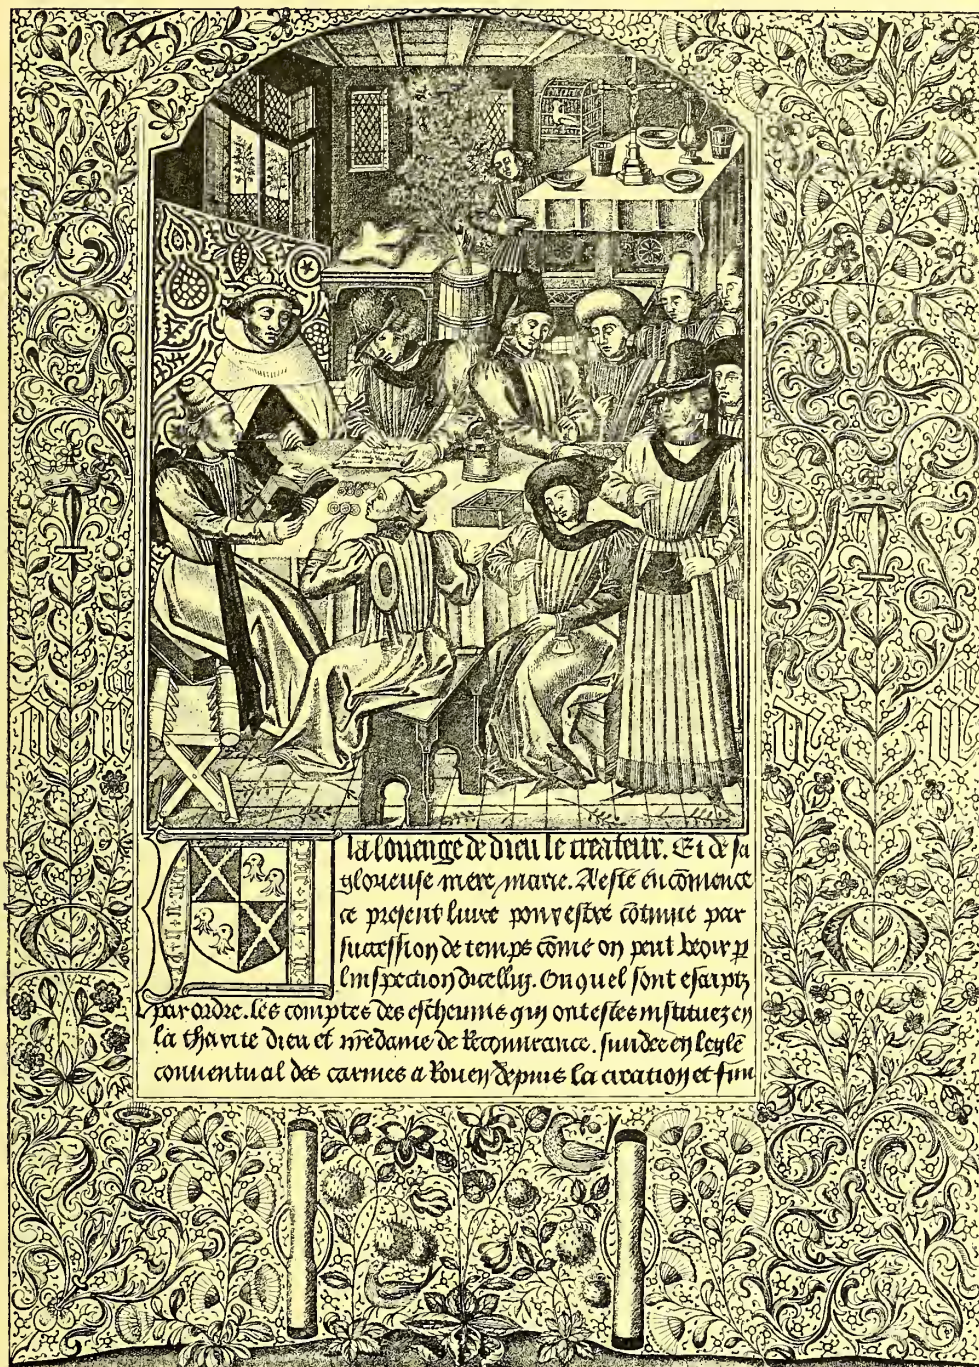 la louenge de dieu le createur. Et de sa
glorieuse mere marie. A este en cōmence
ce present liure pour estre cōtinue par
succession de temps cōme on peut veoir p
linspection dicelluy. Ouquel sont escriptz
par ordre. les comptes des escheuins qui ont estes instituez en
la charite dieu et nr̄e dame de Recouurance. fundee en leglē
conuentual des carmes a Rouen depuis la creation et fun